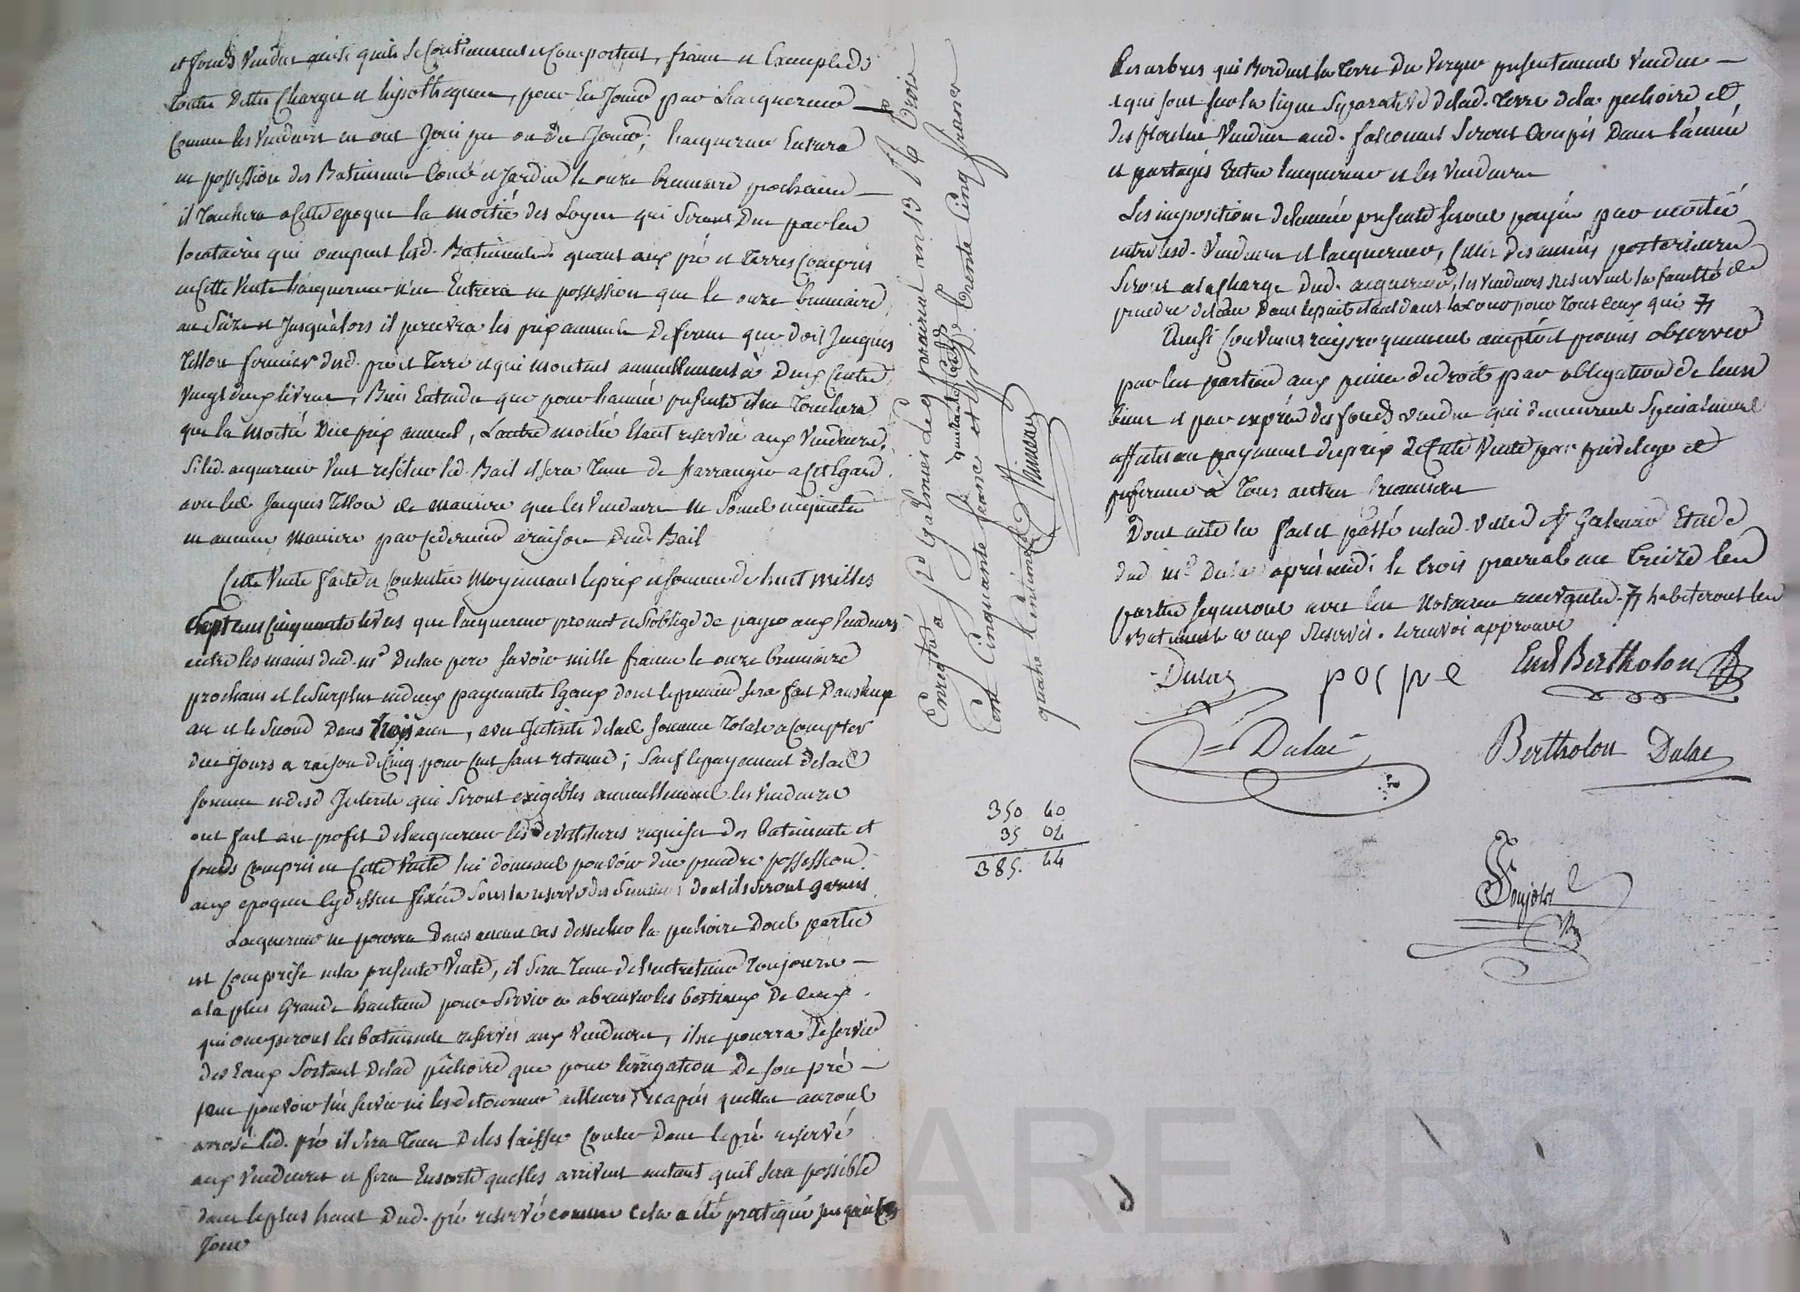 et fonds vendus ainsi quils se Continnent et Comportent, francs et Exempts de
toutes Dettes Charges et hipothèques, pour En Jouir par Lacquereur —
Comme les Vendeurs en ont Joui pu ou du Jouir; Lacquereur Entrera
en possession des Batiments Cour et Jardin le onze brumaire prochain —
il Touchera a Cette epoque la moitié des Loyers qui seront Dus par les
locataires qui occupent lesd. Batiments quant aux pré et Terres Compris
en Cette Vente Lacquereur n'en Entrera en possession que le onze brumaire
an seize et Jusqu'alors il percevra les prix annuels De ferme que doit Jacques
Tesson fermier dud. pré et Terre et qui montent annuellement à Deux Cents
vingt deux livres, Bien Entendu que pour Lannée présente il ne Touchera
que la moitié Du prix annuel, Lautre moitié Etant reservée aux Vendeurs,
Si led. acquereur veut resilier led. Bail il sera Tenu de sarranger a Cet Egard
avec led. Jacques Tesson de maniere que les Vendeurs ne soient inquiétés
en aucune maniere par Ce dernier a raison Dud. Bail
Cette Vente faite et Consentie moyennant le prix et somme de huit milles
Sept Cents Cinquante livres que lacquereur promet et s'oblige de payer aux Vendeurs
entre les mains dud. mr. Dulac pere savoir mille francs le onze brumaire
prochain et le surplus en deux payements Egaux dont le premier sera fait Dans un
an et le second Dans trois ans, avec Intérêts delad. somme Totale a Compter
de ce Jour a raison de Cinq pour Cent sans retenue; sauf le payement delad.
somme et desd. Interets qui seront exigibles annuellement les Vendeurs
ont fait au profit de Lacquereur les devestitures requises des batiments et
fonds Compris en Cette Vente lui donnant pouvoir den prendre possession
aux epoques Cy dessus fixées sous la reserve des semences dont ils seront garnis
Lacquereur ne pourra Dans aucun cas dessecher la pechoire Dont partie
est Comprise en la presente Vente, il sera Tenu de lentretenir Toujours —
a la plus Grande hauteur pour servir a abreuver les bestiaux De Ceux
qui occuperont les batiments reservés aux Vendeurs, il ne pourra se servir
des Eaux sortant Delad. pêchoire que pour lirrigation De son pré —
sans pouvoir s'en servir ni les detourner ailleurs, et après quelles auront
arrosé led. pré il sera Tenu De les laisser Couler dans le pré reservé
aux Vendeurs et fera Ensorte quelles arrivent autant quil sera possible
dans le plus haut Dud. pré reservé comme cela a été pratiqué jusqu'à Ces
Jour
Enregistré a St. Galmier Le 4 prairial an 13 f° 76 Ro. Trois
Cent Cinquante francs et pr. Sd. Trente Cinq francs
quatre Centimes
quarante Cent
350 40
35 04
385. 44
Les arbres qui Bordent la Terre Du Verger presentement Vendue —
et qui sont sur la ligne separative delad. Terre dela pechoire et
des Vendue aud. seront Coupés Dans l'année
et partagés Entre lacquereur et les Vendeurs
Les impositions de lannée présente seront payées par moitié
entre lesd. Vendeurs et lacquereur, Celles des années posterieures
seront a la Charge Dud. acquereur, les vendeurs se reservent la faculté de
prendre de leau Dans le puits etant dans la Cour pour Tous Ceux qui
Ainsi Convenu reciproquement accepté et promis observer
par les parties aux peines de droit par obligation De leurs
biens et par exprès des fonds vendus qui demeurent specialement
affectés au payement du prix de Cette Vente par privilege et
preference à Tous autres Créanciers
Dont acte lu fait et passé en lad. ville de St. Galmier Etude
dud. mr. Dulac après midi le trois prairial an treize les
parties signeront avec les Notaires recevants. habiteront les
Batiments a eux Reservés. le renvoi approuvé
Dulac Eud Bertholon
Dulac Bertholon Dulac